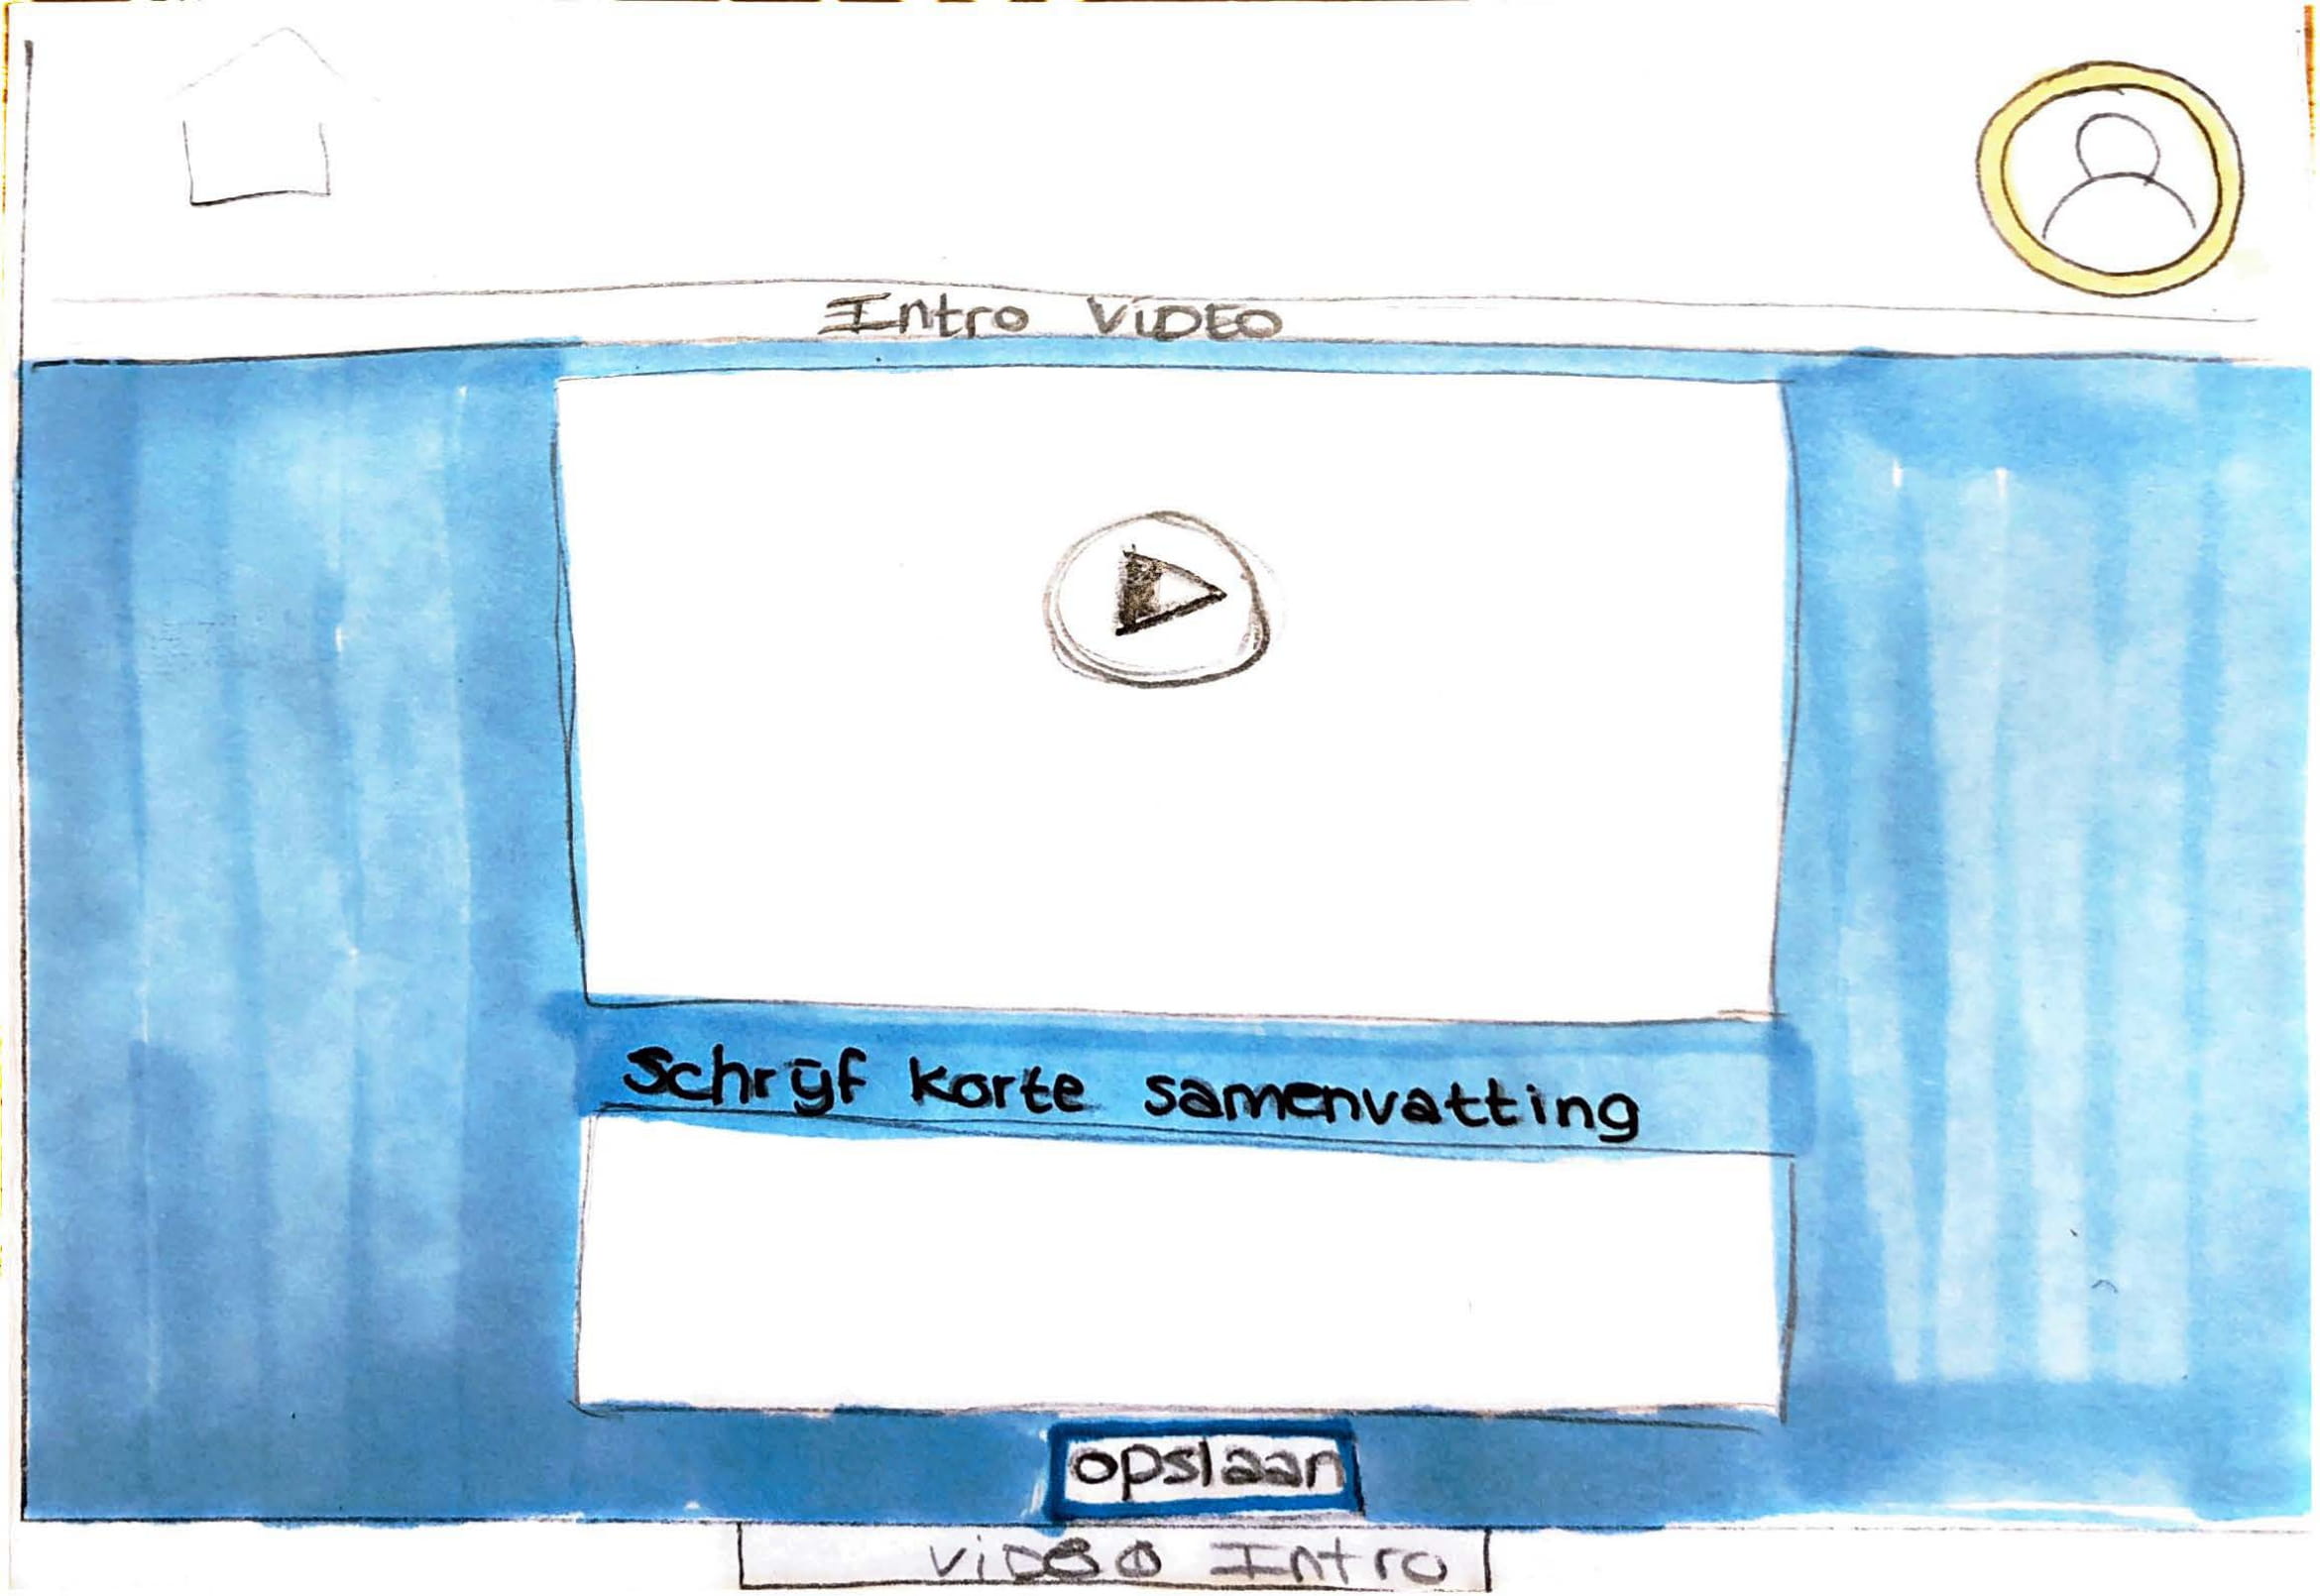 Intro ViDEO
Schrijf korte samenvatting
opslaan
ViDEO Intro